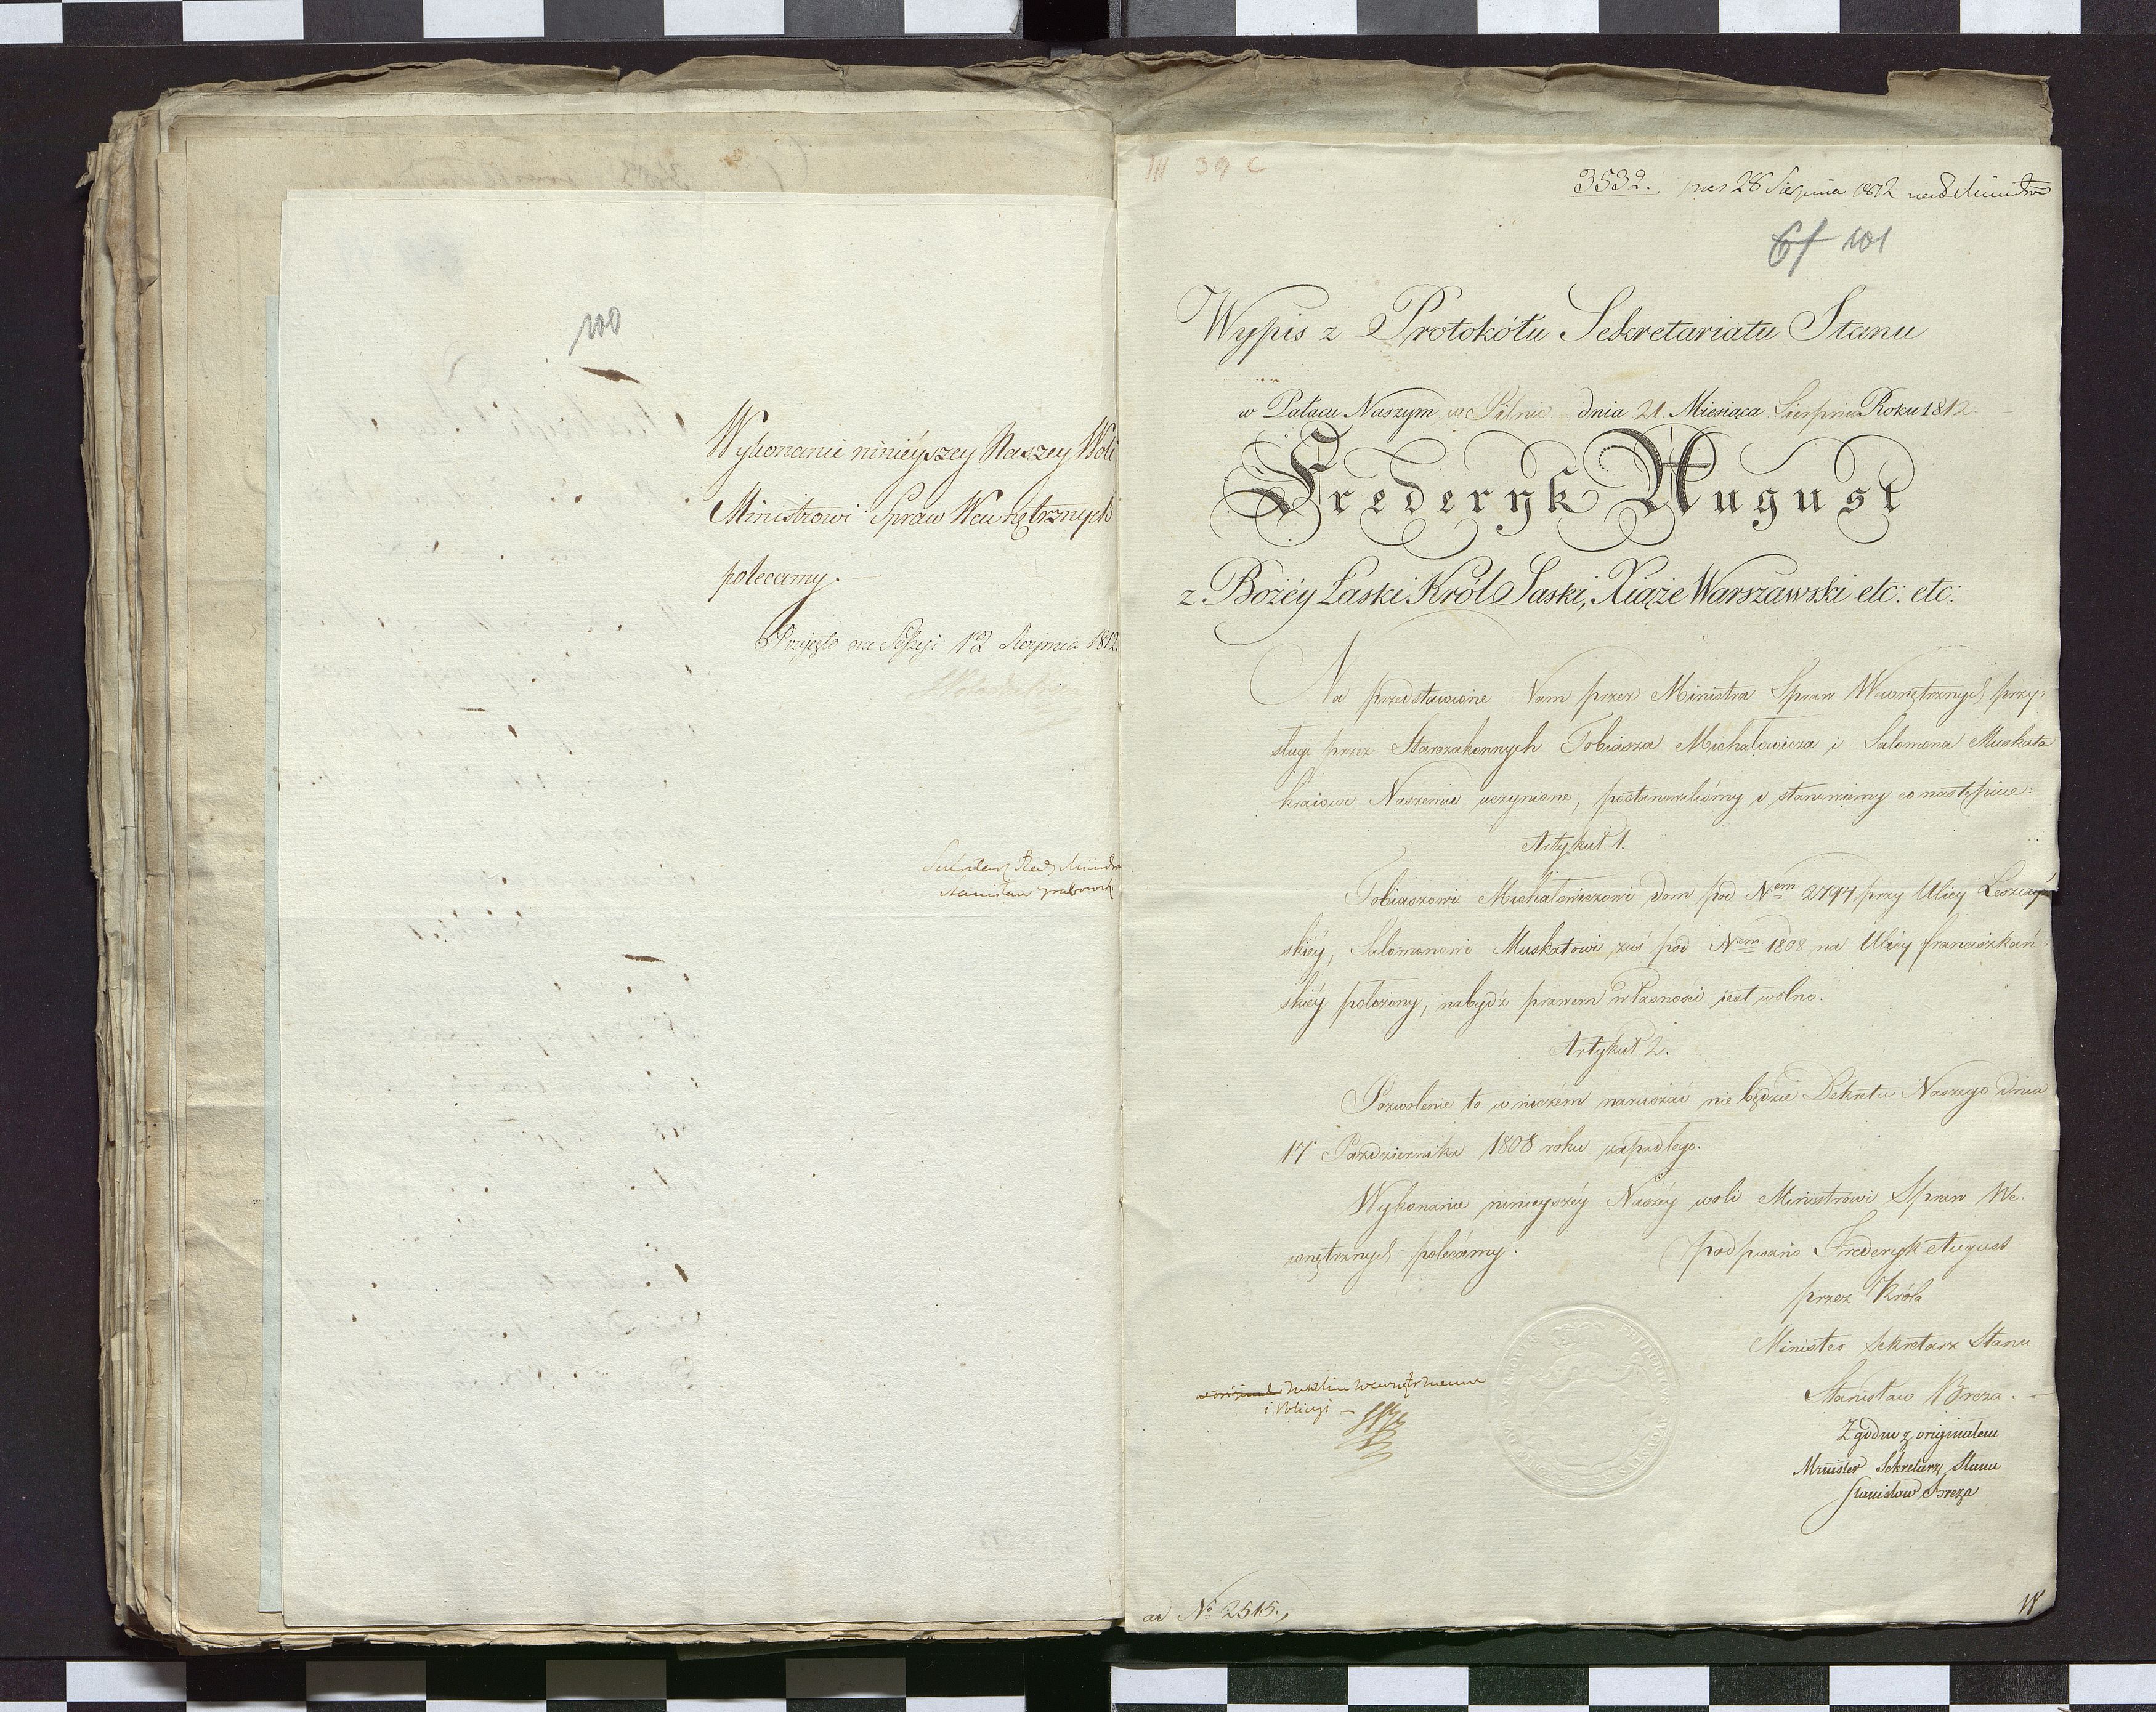 100
Wykonanie ninieyszey Naszey Woli
Ministrowi Spraw Wewnętrznych
polecamy. —
Przyięto na Sessyi 12 Sierpnia 1812.
Sekretarz Rady Ministrów
Stanisław Grabowski
III 39 C
3532. 28 Sierpnia 1812
61 101
Wypis z Protokółu Sekretariatu Stanu
w Pałacu Naszym w Pilnic dnia 21 Miesiąca Sierpnia Roku 1812
Frederyk August
z Bożéy Łaski Król Saski, Xiąże Warszawski etc: etc:
Na przedstawione Nam przez Ministra Spraw Wewnętrznych przy-
sługi przez Starozakonnych Tobiasza Michałowicza i Salomona Muskata
kraiowi Naszemu uczynione, postanowiliśmy i stanowimy co następuie:
Artykuł 1.
Tobiaszowi Michałowiczowi dom pod Nem 2794 przy Ulicy Leszczyń
skiéy, Salomonowi Muskatowi zaś pod Nem 1808 na Ulicy franciszkań-
skiéy położony, nabydź prawem własności iest wolno.
Artykuł 2.
Pozwolenie to w niczém naruszać nie będzie Dekretu Naszego dnia
17 Pazdziernika 1808 roku zapadłego.
Wykonanie ninieyszéy Naszéy woli Ministrowi Spraw We-
wnętrznych polecamy. podpisano Frederyk August
przez Króla
Minister Sekretarz Stanu
Stanisław Breza. —
Zgodno z originałem
Minister Sekretarz Stanu
Stanisław Breza
i Policyi —
ad No 2515.